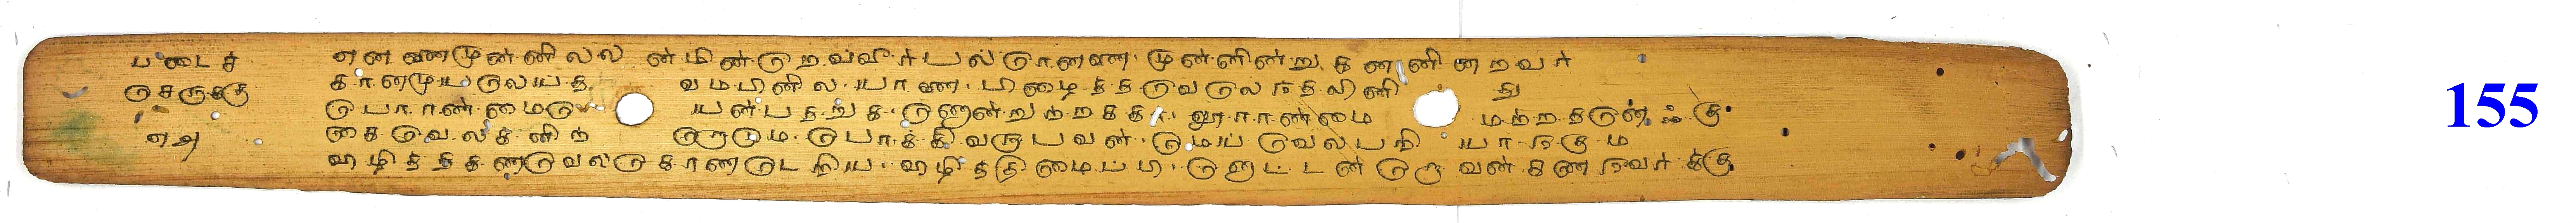 படைச்
செருக்கு
எஅ
என்னைமுன்னில்லன்மின்றெவ்விர்பல்ரென்னை முன்னின்று கன்னின்றவர்
கானமுயலெய்த வம்பினில் யானை பிழைத்தவேலேந்தலினிது
பேராண்மையென்பதறுக ணொன்றுற்றக்கா லூராண்மை மற்றதனெஃகு
கைவேல்களிற்றொடு போக்கிவருபவன் மெய்வேல்பறியா நகும்
விழித்தகண்வேல்கொண்டெறிய வழித்திமைப்பி னொட்டன்றோ வன்கணவர்க்கு
155